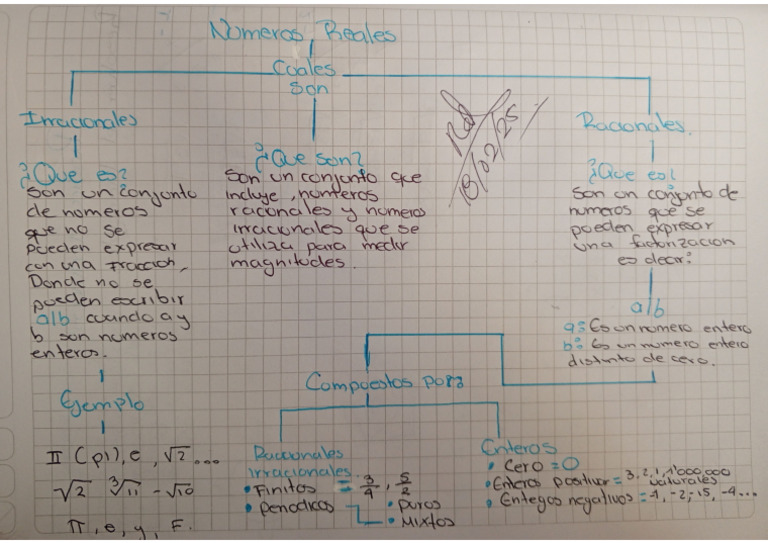 Números Reales
Cuales
son
Irracionales
¿Que es?
Son un conjunto
de numeros
que no se
pueden expresar
con una fraccion,
Donde no se
pueden escribir
a/b cuando a y
b son numeros
enteros.
Ejemplo
II (pi), e, √2...
√2 ∛11 - √10
π, e, y, F.
¿Que son?
Son un conjunto que
incluye, numeros
racionales y numero
irracionales que se
utiliza para medir
magnitudes.
18/02/25
Racionales.
¿Que es?
Son un conjunto de
numeros que se
pueden expresar
una factorizacion
es decir:
a/b
a: Es un numero entero
b: Es un numero entero
distinto de cero.
Compuestos por:
Racionales
irracionales.
• Finitos = 3/4, 5/2
• Periodicos
• Puros
• Mixtos
Enteros
• Cero = 0
• Enteros positivos = 3, 2, 1, 1'000,000
naturales
• Entegos negativos = -1, -2, -15, -4...